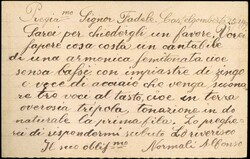 Pregia mo Signor Dadole
Sarei per chiedergli un favore, Vorei
sapere cosa costa un cantabile
di una armonica semitonata voc
senza bassi con impiastre di zingo
e voce di accaio che venga sciona
re tro voci al tasto, cioè in terza
ovorosia tripola, tonazione in do
naturale la prima fila. Lo preghe
rei di rispondermi subito Lo riverisco
Il suo obligmo Normali Alfonso